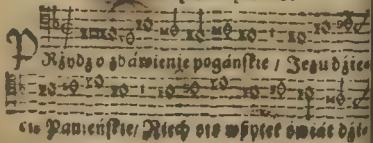 PRzydź o zbáwienie pogáńskie / Jezu dziecię
cię Pánieńskie / Niech się wszytek świát dzi=